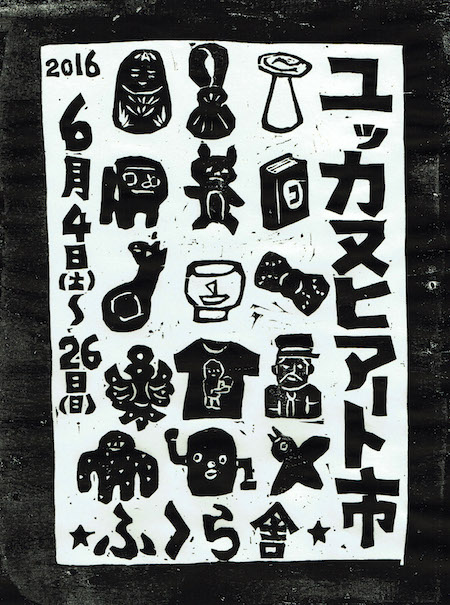 ユッカヌヒアート市
2016
6月4日(土)～26日(日)
★ふくら舎★